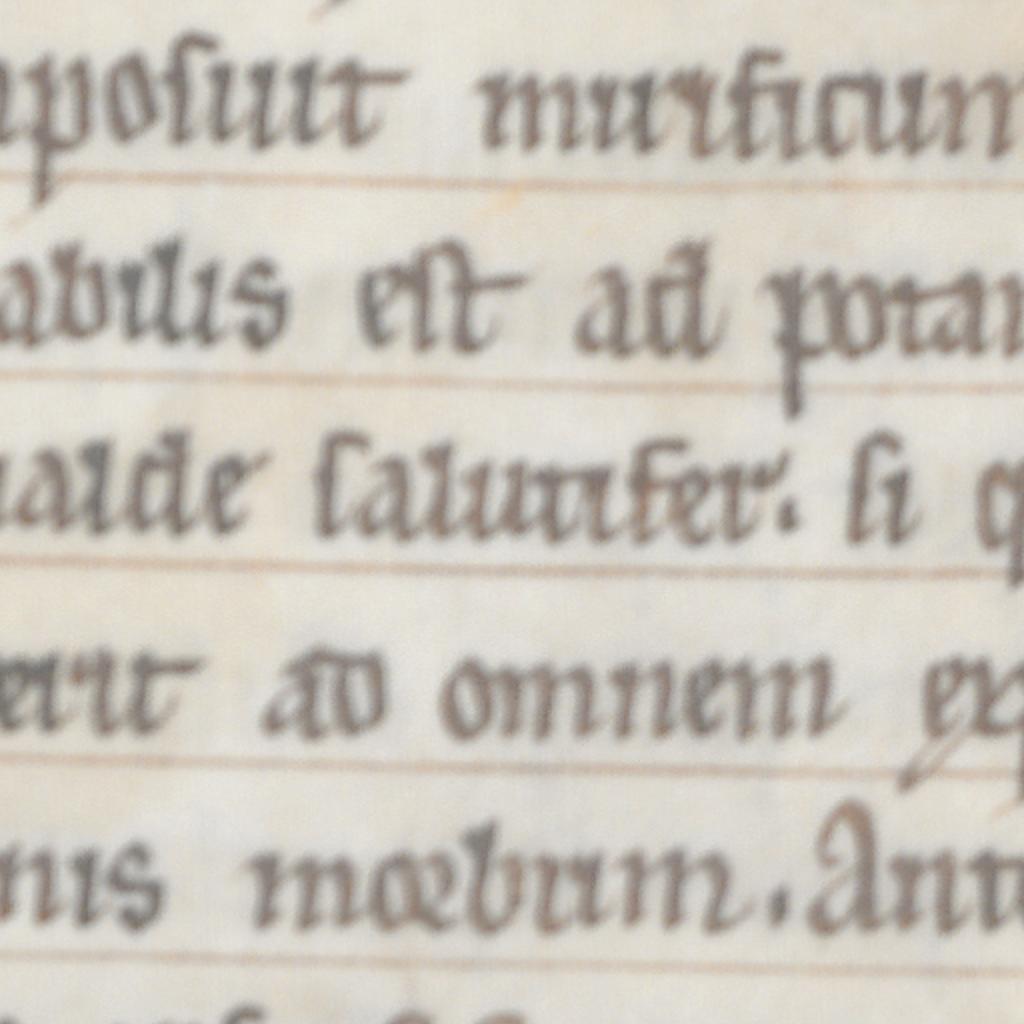 posuit mirificum
abilis est ad potan
ualde salutifer. si q
erit ad omnem exp
nus morbum. Ant